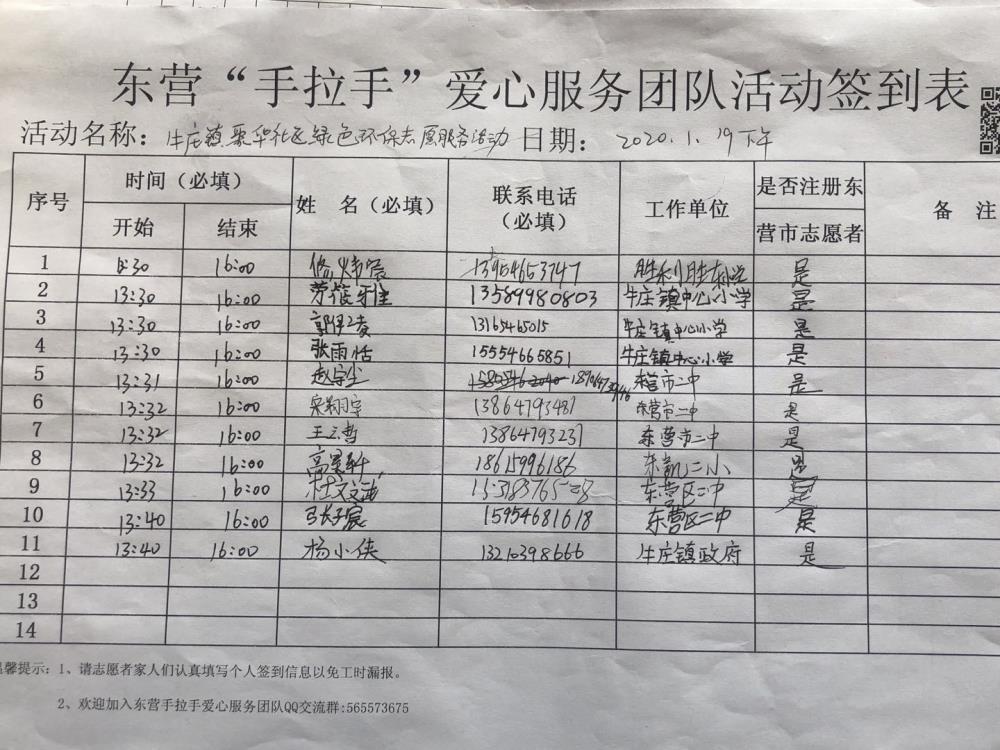 东营“手拉手”爱心服务团队活动签到表
活动名称：牛庄镇聚华社区绿色环保志愿服务活动 日期：2020.1.19下午
序号 时间（必填） 姓 名（必填） 联系电话（必填） 工作单位 是否注册东营市志愿者 备 注
开始 结束
1 16:00 13954653747 是
2 13:30 16:00 13589980803 牛庄镇中心小学 是
3 13:30 16:00 13165465015 牛庄镇中心小学 是
4 13:30 16:00 张雨恬 15554665851 牛庄镇中心小学 是
5 13:31 16:00 赵宇尘 东营市二中 是
6 13:32 16:00 梁翔宇 13864793487 东营市二中 是
7 13:32 16:00 王云哲 13864793237 东营市二中 是
8 13:32 16:00 高昊轩 18615996186 是
9 13:33 16:00 东营区二中 是
10 13:40 16:00 张子宸 15954681618 东营区二中 是
11 13:40 16:00 杨小侠 13210398666 牛庄镇政府 是
12
13
14
馨提示：1、请志愿者家人们认真填写个人签到信息以免工时漏报。
2、欢迎加入东营手拉手爱心服务团队QQ交流群:565573675